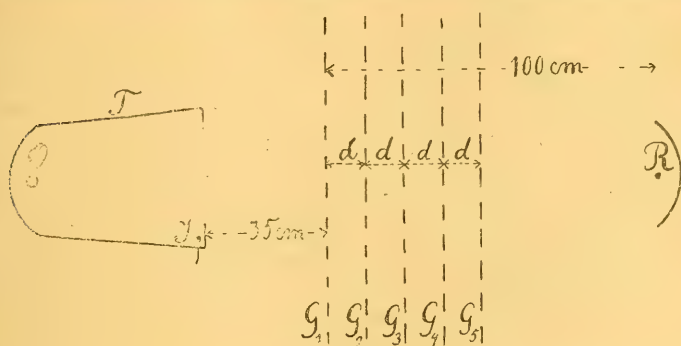 100 cm
T
d d d d
R
35 cm
G₁ G₂ G₃ G₄ G₅